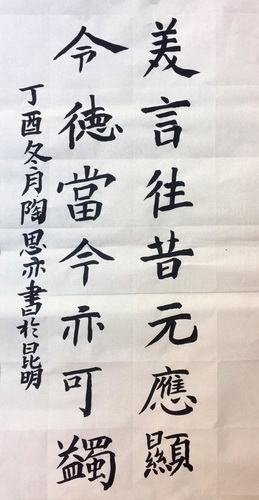 美言往昔元應顯
令德當今亦可蠲
丁酉冬月陶思亦書於昆明